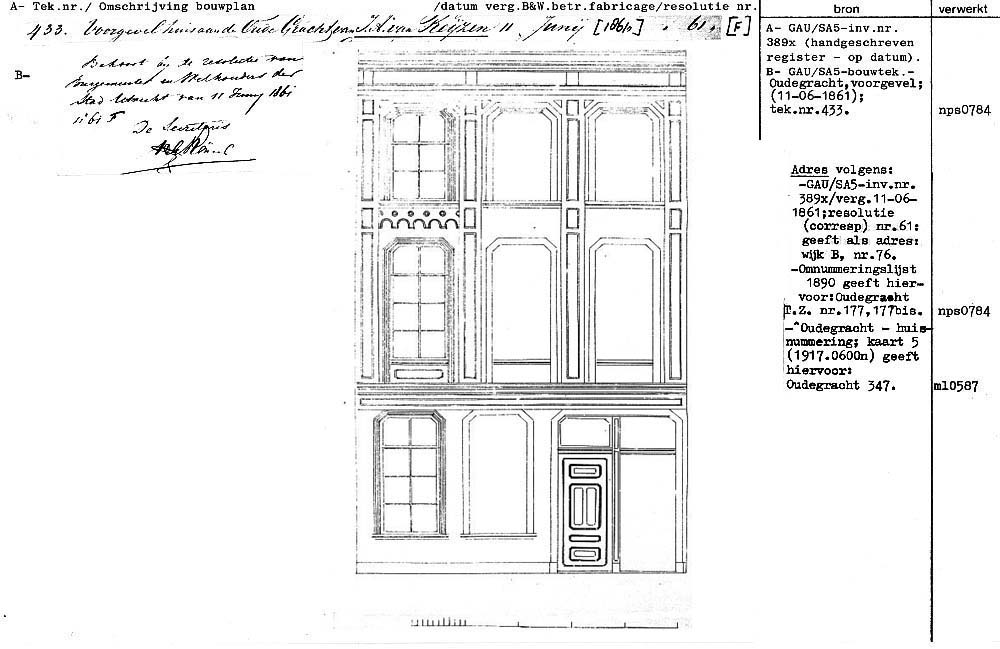 A- Tek.nr./ Omschrijving bouwplan /datum verg.B&W.betr.fabricage/resolutie nr.
433. Voorgevel huis aan de Oude Gracht van J.A. van 11 Junij [1861] . 61. [F]
B-
Behoort bij de resolutie van
Burgemeester en Wethouders der
Stad Utrecht van 11 Junij 1861
n° 61 F
De Secretaris
bron
A- GAU/SA5-inv.nr.
389x (handgeschreven
register - op datum).
B- GAU/SA5-bouwtek.-
Oudegracht,voorgevel;
(11-06-1861);
tek.nr.433.
Adres volgens:
-GAU/SA5-inv.nr.
389x/verg.11-06-
1861;resolutie
(corresp) nr.61:
geeft als adres:
wijk B, nr.76.
-Omnummeringslijst
1890 geeft hier-
voor:Oudegracht
T.Z. nr.177,177bis.
-^Oudegracht - huis-
nummering; kaart 5
(1917.0600n) geeft
hiervoor:
Oudegracht 347.
verwerkt
nps0784
nps0784
ml0587